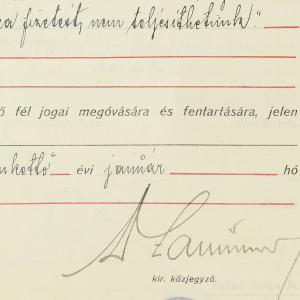 a fizetést, nem teljesíthetünk."
ő fél jogai megóvására és fentartására, jelen
kettő" évi január hó
kir. közjegyző.